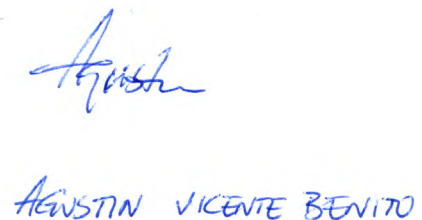 Agustin
AGUSTIN VICENTE BENITO